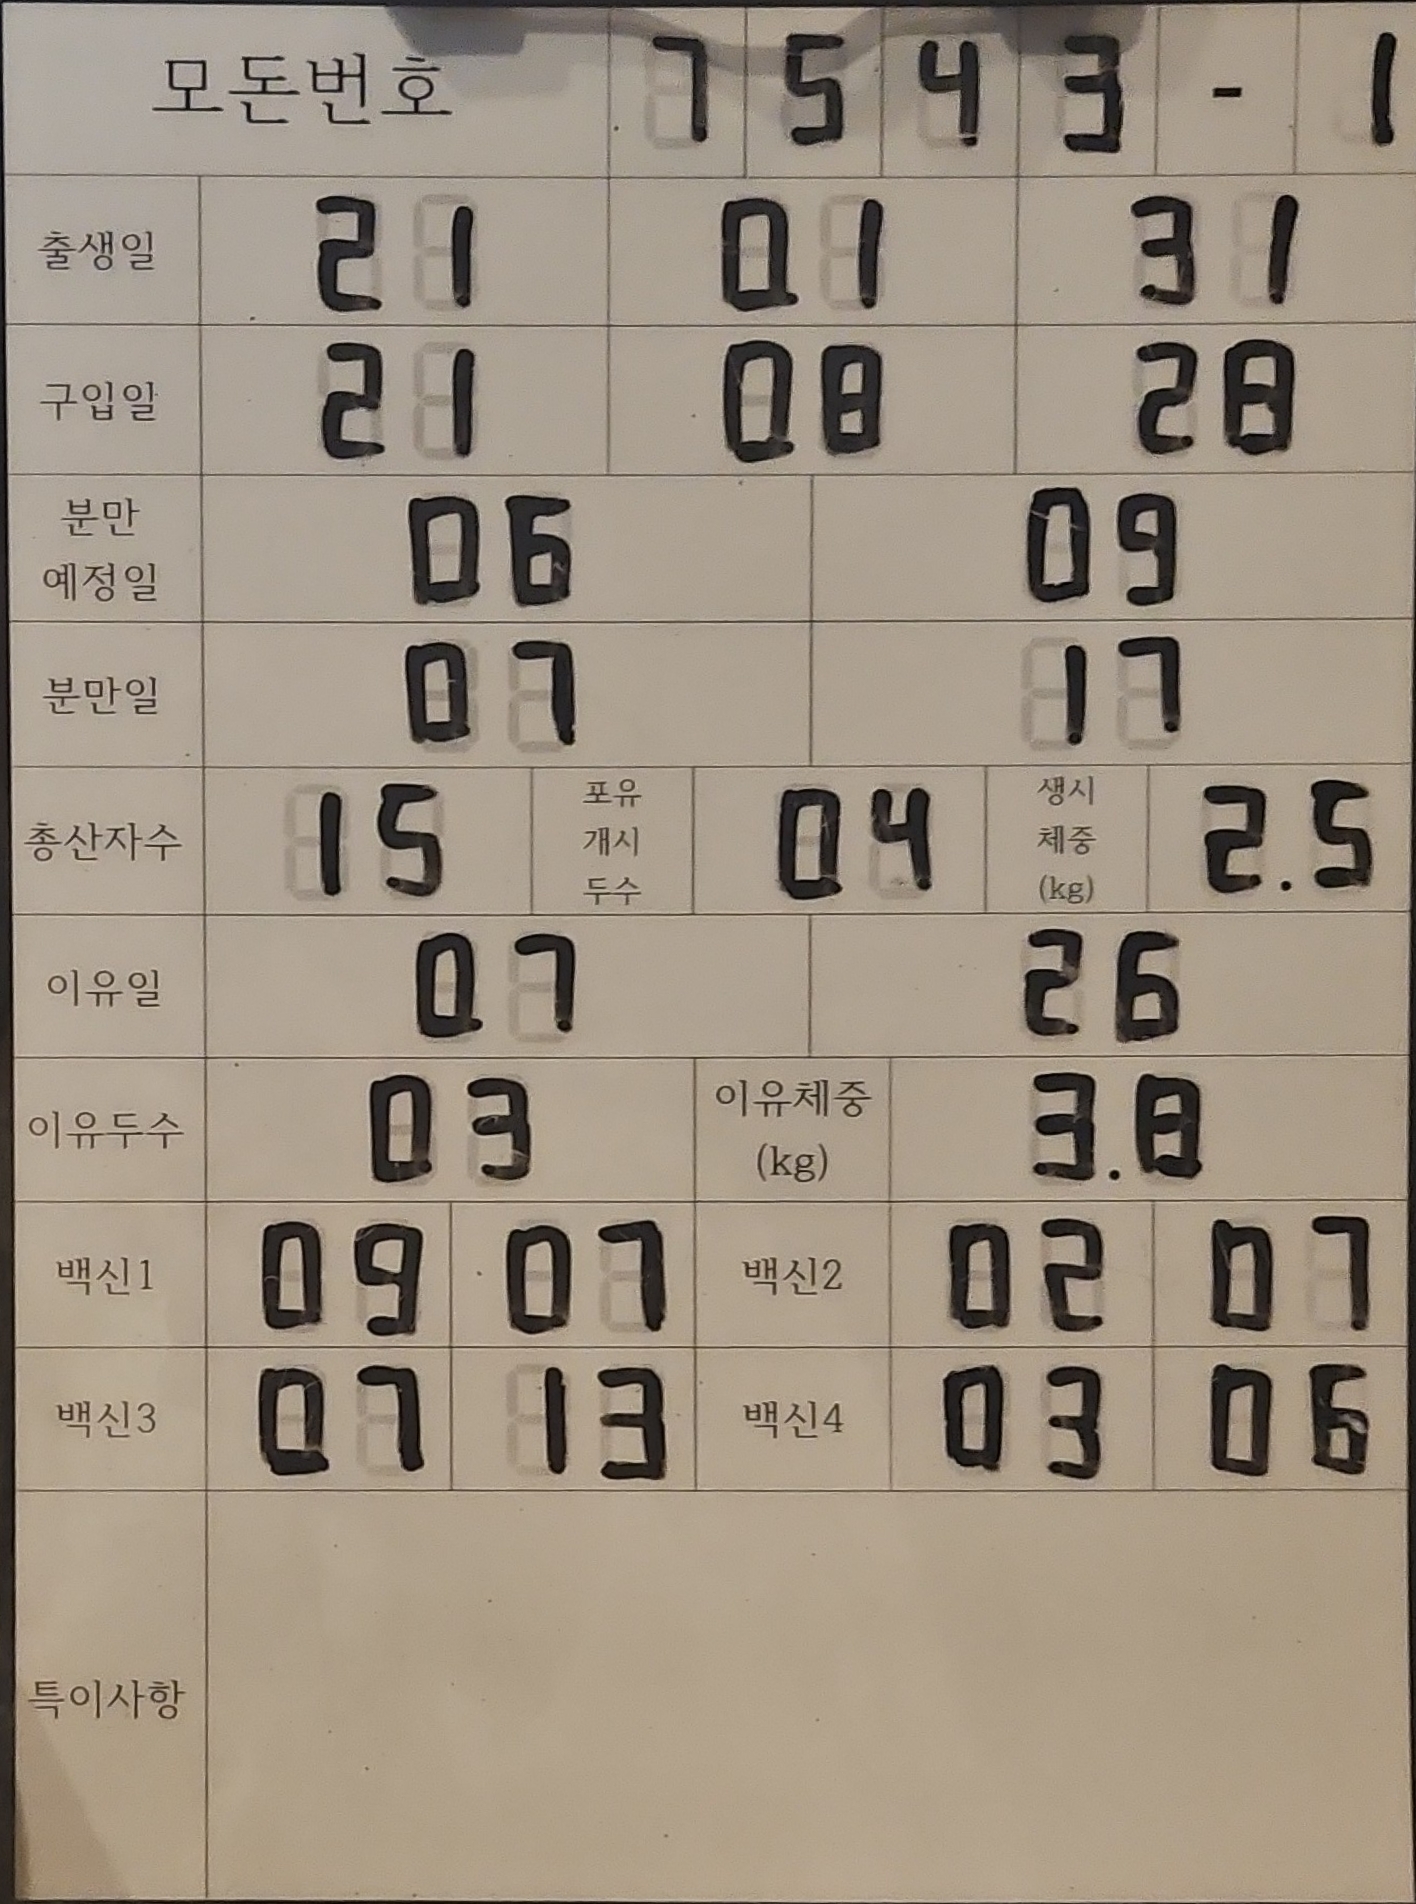 모돈번호 7 5 4 3 - 1
출생일 21 01 31
구입일 21 08 28
분만 예정일 06 09
분만일 07 17
총산자수 15 포유 개시 두수 04 생시 체중 (kg) 2.5
이유일 07 26
이유두수 03 이유체중 (kg) 3.8
백신1 09 07 백신2 02 07
백신3 07 13 백신4 03 06
특이사항